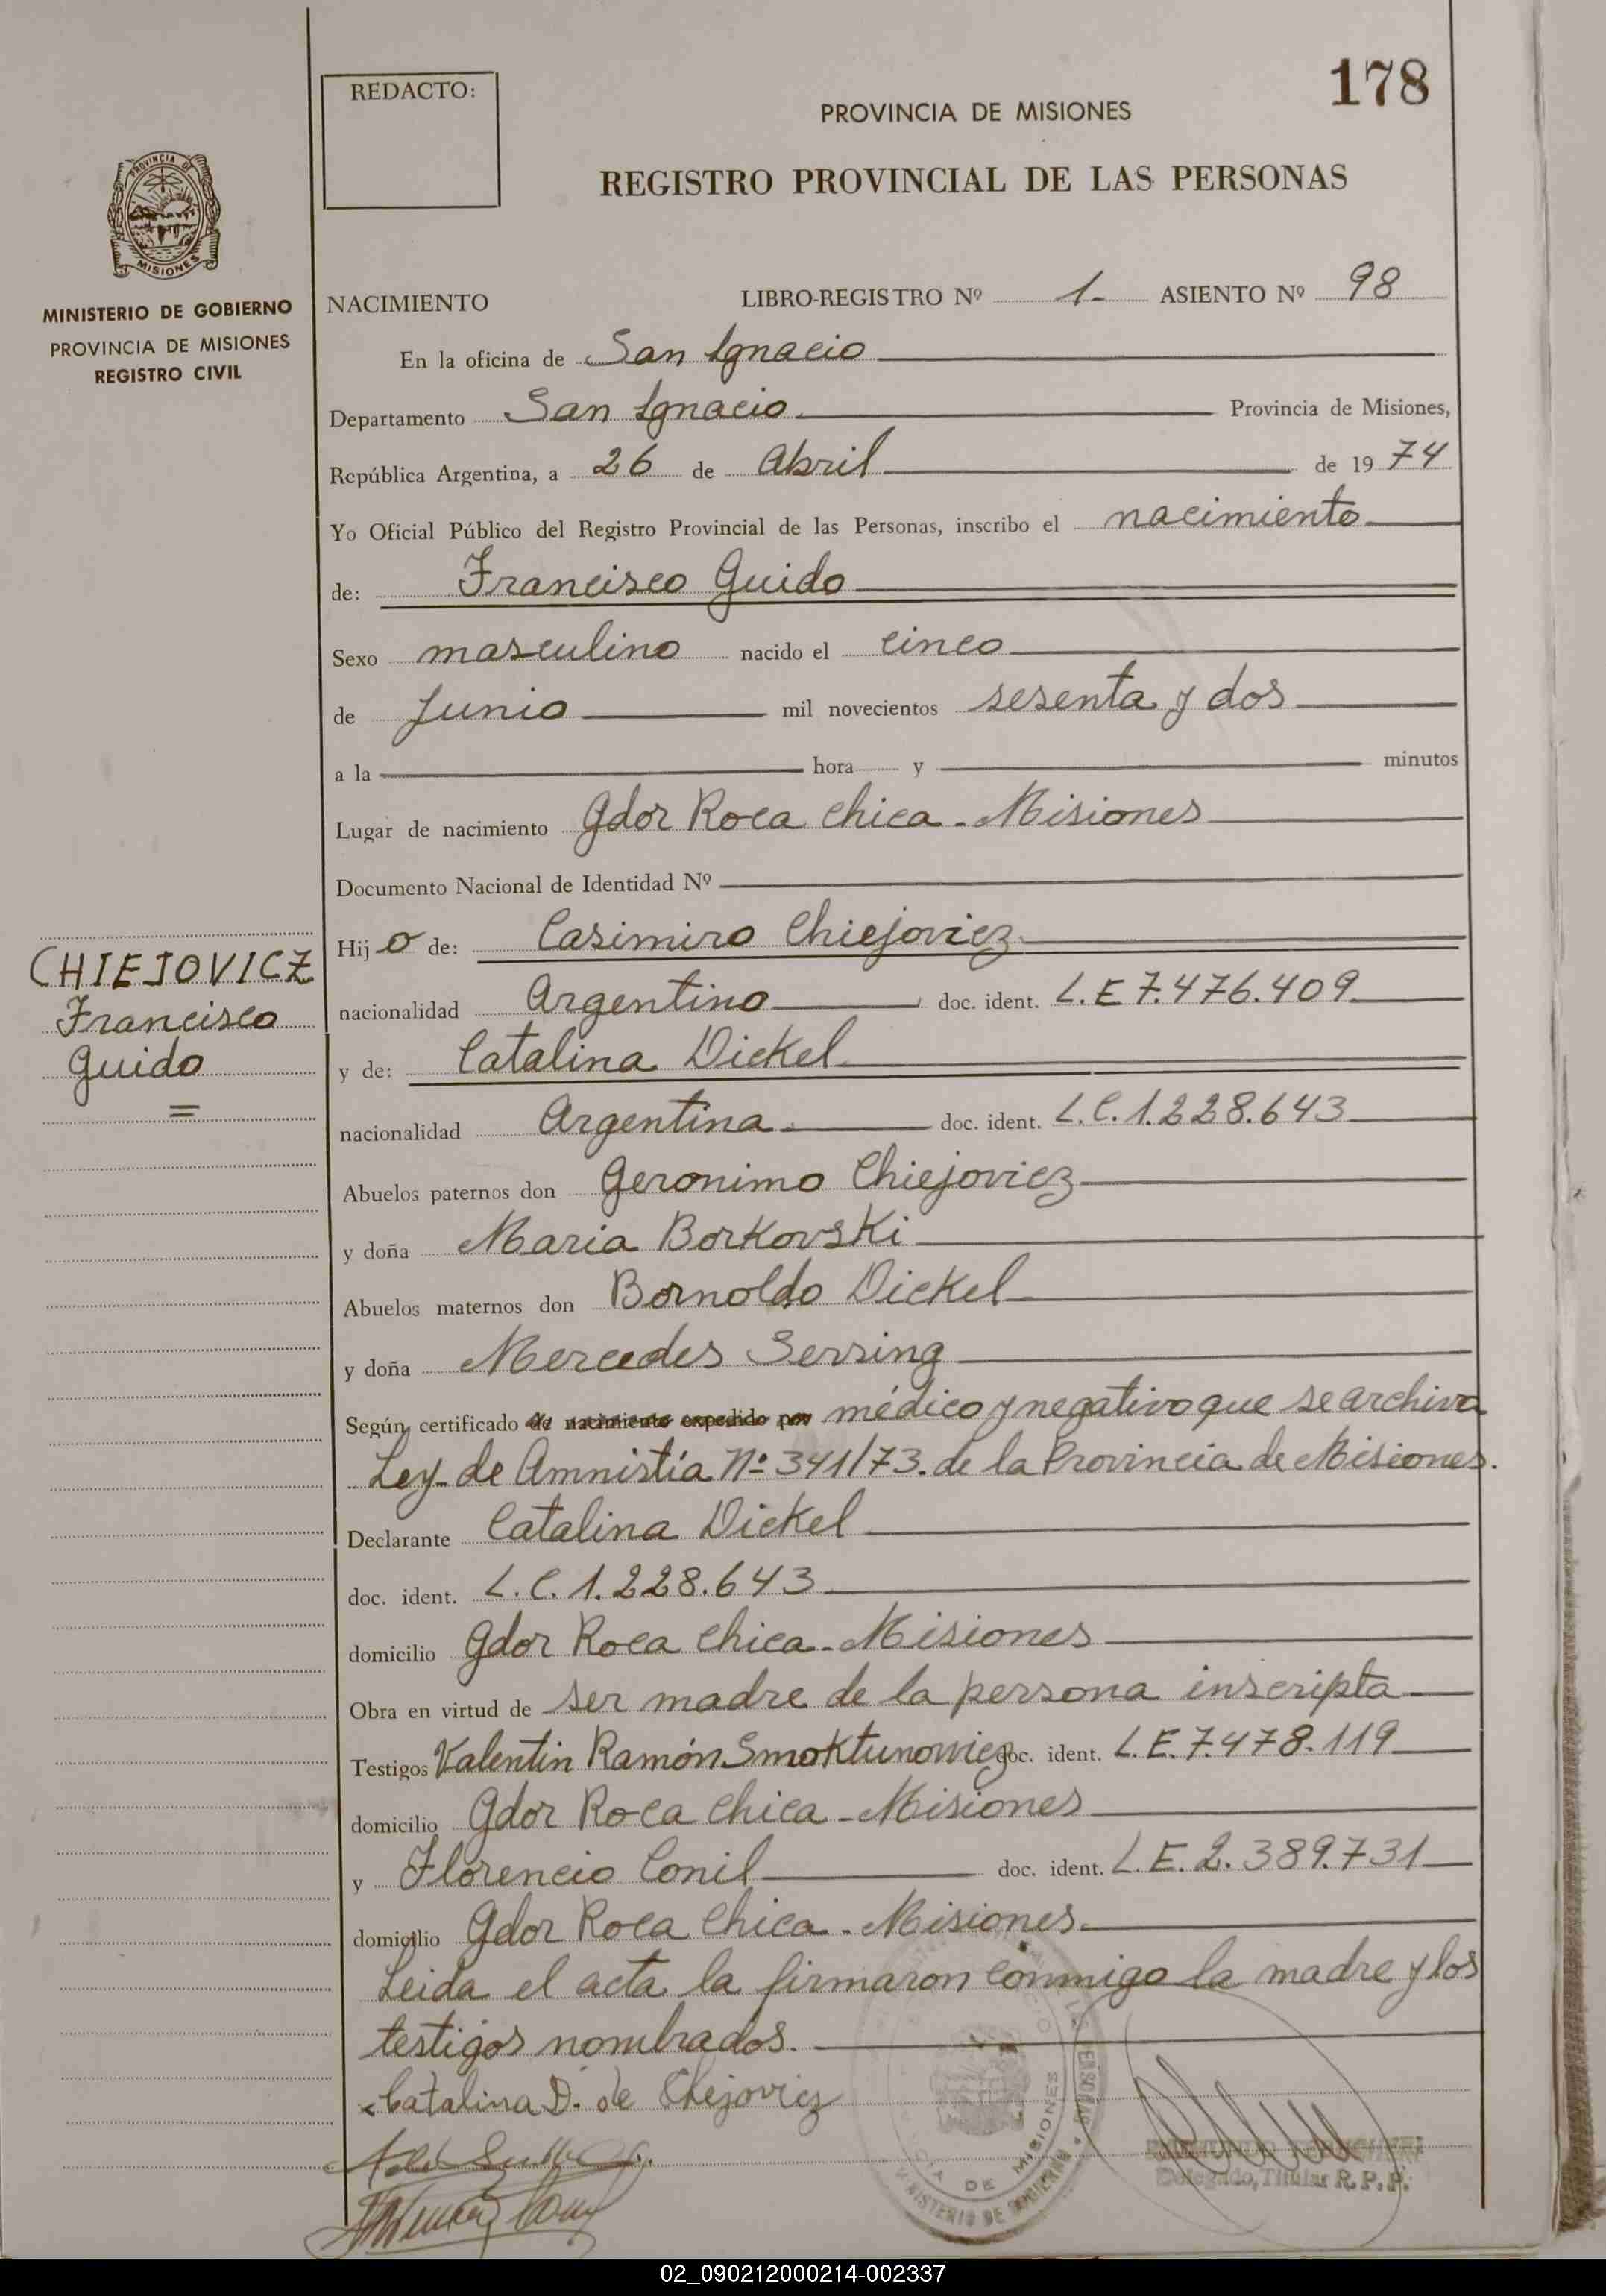 178
REDACTO:
PROVINCIA DE MISIONES
REGISTRO PROVINCIAL DE LAS PERSONAS
PROVINCIA DE
MISIONES
MINISTERIO DE GOBIERNO
PROVINCIA DE MISIONES
REGISTRO CIVIL
NACIMIENTO LIBRO-REGISTRO Nº 1- ASIENTO Nº 98
En la oficina de San Ignacio
Departamento San Ignacio Provincia de Misiones,
República Argentina, a 26 de Abril de 1974
Yo Oficial Público del Registro Provincial de las Personas, inscribo el nacimiento
de: Francisco Guido
Sexo masculino nacido el cinco
de Junio mil novecientos sesenta y dos
a la hora y minutos
Lugar de nacimiento Gdor Roca Chica - Misiones
Documento Nacional de Identidad Nº
Hijo de: Casimiro Chiejovicz
CHIEJOVICZ
Francisco
Guido
=
nacionalidad Argentino doc. ident. L.E 7.476.409
y de: Catalina Dickel
nacionalidad Argentina doc. ident. L.C. 1.228.643
Abuelos paternos don Geronimo Chiejovicz
y doña Maria Borkovski
Abuelos maternos don Bornoldo Dickel
y doña Mercedes Serring
Según certificado de nacimiento expedido por médico y negativo que se archiva
Ley de Amnistía Nº 341/73. de la Provincia de Misiones.
Declarante Catalina Dickel
doc. ident. L.C. 1.228.643
domicilio Gdor Roca Chica - Misiones
Obra en virtud de ser madre de la persona inscripta
Testigos Valentin Ramón Smoktunowicz doc. ident. L.E. 7.478.119
domicilio Gdor Roca Chica - Misiones
y Florencio Conil doc. ident. L.E. 2.389.731
domicilio Gdor Roca Chica - Misiones
Leida el acta la firmaron conmigo la madre y los
testigos nombrados.
Catalina D. de Chejovicz
DE MISIONES
MINISTERIO DE GOBIERNO
Delegado Titular R.P.P.
02_090212000214-002337